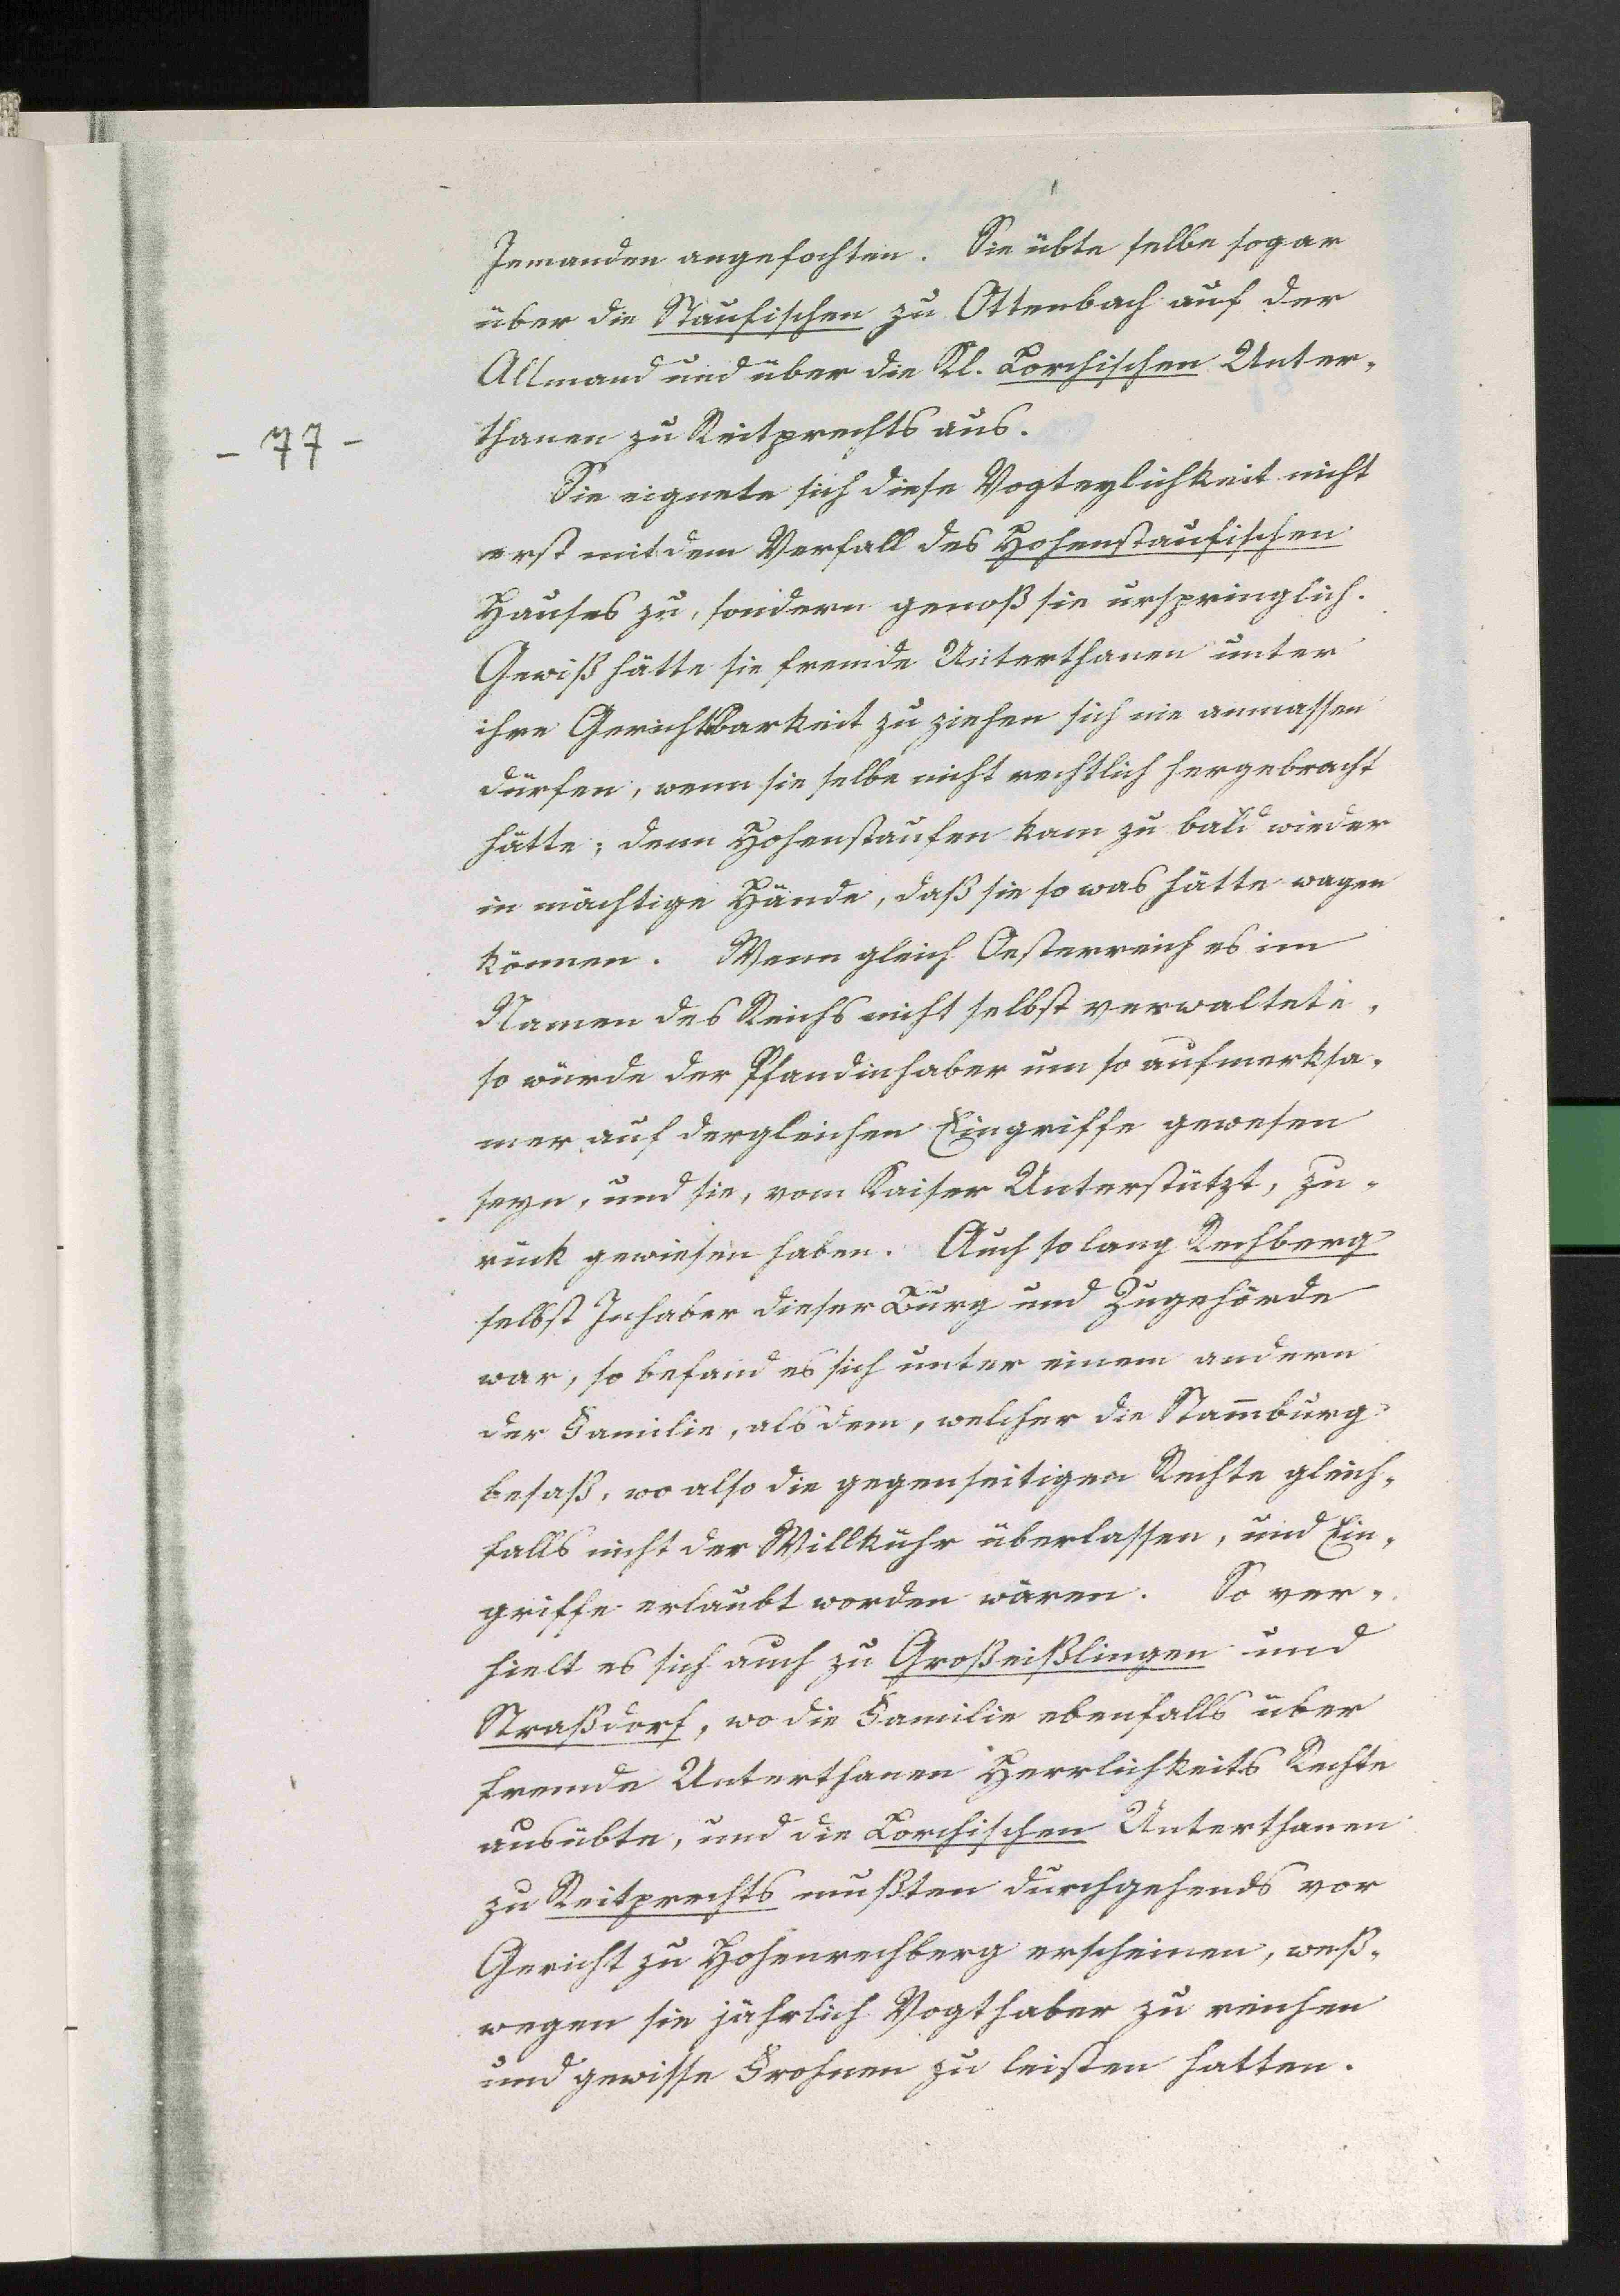 Jemanden angefochten. Sie übte selbe sogar
über die Staufischen zu Ottenbach auf der
Allmand und über die Kl. Lorchischen Unter-
- 77 -
thanen zu Reitprechts aus.
Sie eignete sich diese Vogteylichkeit nicht
erst mit dem Verfall des Hohenstaufischen
Hauses zu, sondern genoß sie urspringlich.
Gewiß hätte sie fremde Unterthanen unter
ihre Gerichtbarkeit zu ziehen sich nie anmassen
dürfen, wenn sie selbe nicht rechtlich hergebracht
hätte; denn Hohenstaufen kam zu bald wieder
in mächtige Hände, daß sie so was hätte wagen
können. Wenn gleich Oesterreich es im
Namen des Reichs nicht selbst verwaltete,
so würde der Pfandinhaber um so aufmerksa-
mer auf dergleichen Eingriffe gewesen
seyn, und sie, vom Kaiser Unterstützt, zu-
rück gewiesen haben. Auch so lang Rechberg
selbst Inhaber dieser Burg und Zugehörde
war, so befand es sich unter einem andern
der Familie, als dem, welcher die Stam̄burg
besaß, wo also die gegenseitigen Rechte gleich-
falls nicht der Willkühr überlassen, und Ein-
griffe erlaubt worden wären. So ver-
hielt es sich auch zu Großeißlingen und
Straßdorf, wo die Familie ebenfalls über
fremde Unterthanen Herrlichkeits Rechte
ausübte, und die Lorchischen Unterthanen
zu Reitprechts mußten durchgehends vor
Gericht zu Hohenrechberg erscheinen, weß-
wegen sie jährlich Vogthaber zu reichen
und gewisse Frohnen zu leisten hatten.